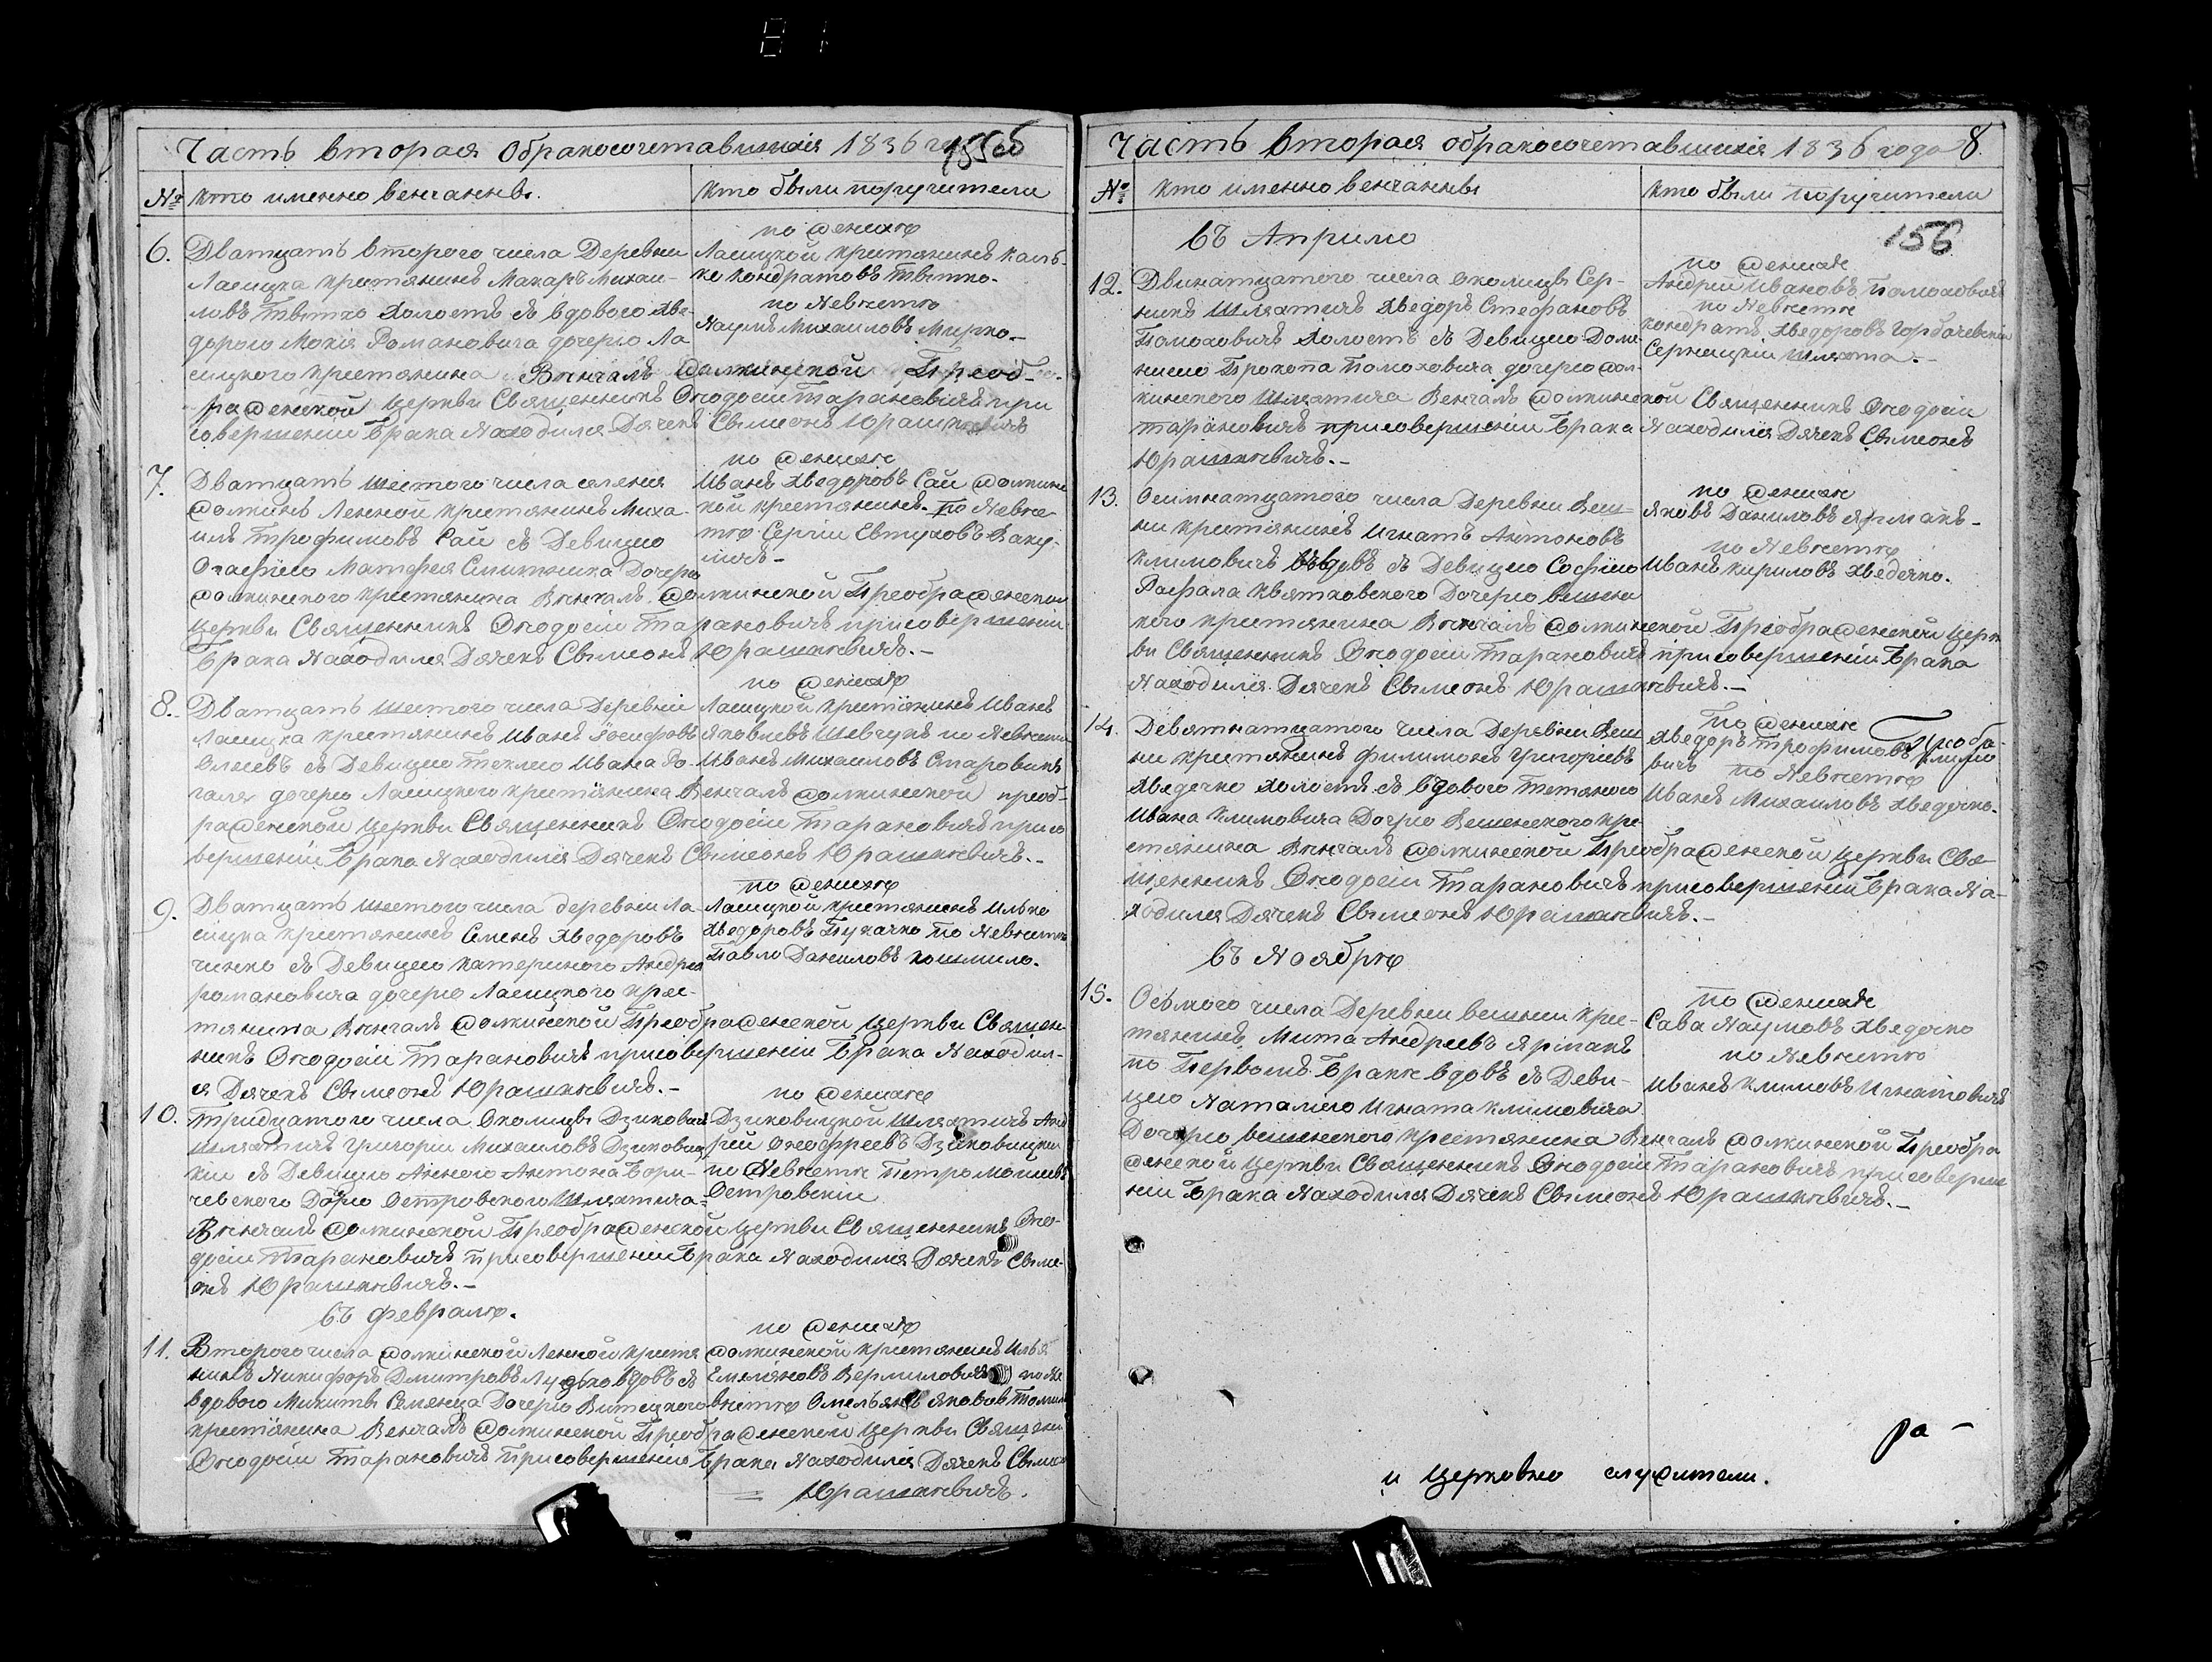 81
Часть вторая обракосочетавшихся 1836 го 155об
№ кто именно венчанны.
кто были поручители
6. Дватцать второго числа Деревни
Ласицка крестянинъ Макаръ Михаи-
ловъ Твытко холостъ съ вдовою Хве-
дорою Мокія Романовича дочерю Ла
сицкого крестянина Вѣнчалъ Жолкинской Преоб-
раженской церкви Священникъ Ѳеодосіи Тарановичъ при
совершеніи Брака Находился Дячекъ Сѵмеонъ Юрашкевичъ
по женихѣ
Ласицкой крестянинъ Каль-
ко Кондратовъ Твытко.
по Невѣстѣ
Наумъ Михаиловъ Мирко.
7. Дватцать шестого числа селения
Жолкинъ Ленной крестянинъ Миха-
илъ Трофимовъ Сай съ Девицею
Агафіею Матфея Смитюха Дочерю
Жолкинского крестянина Вѣнчалъ Жолкинской Преображенской
церкви Священникъ Ѳеодосіи Тарановичъ присовершеніи
Брака Находился Дячекъ Сѵмеонъ Юрашкевичъ.-
по женихе
Иванъ Хведоровъ Сай Жолкинс
кой крестянинъ. по Невѣс
тѣ Сергіи Евтуховъ Ваку-
личъ-
8. Дватцать шестого числа Деревніи
Ласицка крестянинъ Иванъ Іосифовъ
Олесевъ съ Девицею Теклею Ивана Ро-
галя дочерю Ласицкого крестянина Венчалъ Жолкинской преоб-
раженской церкви Священникъ Ѳеодосіи Тарановичъ присо
вершеніи Брака Находился Дячекъ Сѵмеонъ Юрашкевичъ.-
по женихѣ
Ласицкой крестянинъ Иванъ
Яковлевъ Шевчукъ по Невѣсти
Иванъ Михаиловъ Старовикъ
9. Дватцать шестого числа деревни Ла-
сицка крестянинъ Семенъ Хведоровъ
Чинко съ Девицею Катериною Андрея
романовича дочерю Ласицкого крес-
тянина Вѣнчалъ Жолкинской Преображенской церкви Священ-
никъ Ѳеодосіи Тарановичъ присовершеніи Брака Находил-
ся Дячекъ Сѵмеонъ Юрашкевичъ.-
по женихѣ
Ласицкой крестянинъ Илько
Хведоровъ Пукачко по Невѣсти
Павло Даниловъ Кошмило.
10. Тридцатого числа Околицы Дзиковичъ
Шляхтичъ Григоріи Михаиловъ Дзиковиц
кіи съ Девицею Анною Антона Бори-
чевского Дочерю Островского Шляхтича=
Вѣнчалъ Жолкинской Преображенской церкви Священникъ Ѳео-
досіи Тарановичъ присовершеніи Брака Находился Дячекъ Сѵме-
онъ Юрашкевичъ.-
по женихе
Дзиковицкой Шляхтичъ Анд
рей Онофреевъ Дзиковицкіи
по Невѣсте Петро Моисеевъ
Островскіи
въ Февралѣ.
11. Второго числа Жолкинской Ленной крестя
нинъ Никифоръ Дмитровъ вдовъ съ
вдовою Микиты Семенца Дочерю крестянина Венчалъ Жолкинской Преображенской Церкви Священ
Ѳеодосіи Тарановичъ Присовершеніи Брака Находился Дячекъ Сѵмеон
= Юрашкевичъ.
по женихѣ
Жолкинской крестянинъ Илья
Емеліановъ Вермиловичъ по Не
вѣстѣ Омельянъ Яковлев
Часть вторая обракосочетавшихся 1836 года 8.
№ кто именно венчанны
кто были поручители
156
въ Априлю
12. Двинатцатого числа околицы Сер-
никъ Шляхтичъ Хведоръ Стефановъ
Полюховичъ Холостъ съ Девицею Доми-
никею Прокопа Полюховича дочерю Жол-
кинского Шляхтича Венчалъ Жолкинской Священникъ Ѳеодосіи
Тарановичъ присовершеніи Брака Находился Дячекъ Сѵмеонъ
Юрашкевичъ.-
по женихе
Андрей Ивановъ Полюховичъ
по Невѣсте
Кондратъ Хведоровъ Горбачевскіи
Серницкіи шляхта.-
13. Осимнатцатого числа Деревни Веш-
ни крестянинъ Игнатъ Антоновъ
Климовичъ вдовъ съ Девицею Софіею
Рафала Квятковского Дочерю вешнен
кого крестянина Вѣнчалъ Жолкинской Преображенской церк
ви Священникъ Ѳеодосіи Тарановичъ присовершеніи Брака
Находился Дячекъ Сѵмеонъ Юрашкевичъ.-
по женихе
Яковъ Даниловъ Ярмакъ-
по Невѣстѣ
Иванъ Кириловъ Хведечко.
14. Девятнатцатого Числа Деревни Веш
ни крестянинъ Филимонъ Григоріевъ
Хведечко холостъ съ вдовою Тетяною
Ивана Климовича Дочерю Вешенского кре-
стянина Вѣнчалъ Жолкинской Преображенской церкви Свя-
щенникъ Ѳеодосіи Тарановичъ присовершеніи Брака На-
ходился Дячекъ Сѵмеонъ Юрашкевичъ.-
по женихе
Хведоръ Трофимовъ Климо
вичъ по Невѣстѣ
Иванъ Михаиловъ Хведечко.
въ Ноябрѣ
15. Осьмого числа Деревни вешни крес-
тянинъ Мита Андреевъ Ярмакъ
по Первомъ Бракѣ вдовъ съ Деви-
цею Наталіею Игната Климовича
Дочерю вешенского крестянина Венчалъ Жолкинской Преобра
женской церкви Священникъ Ѳеодосіи Тарановичъ присоверше
ніи Брака Находился Дячекъ Сѵмеонъ Юрашкевичъ.-
по женихе
Сава Наумовъ Хведечко
по Невѣстѣ
Иванъ Климовъ Игнатовичъ
ра-
и Церковно служители.